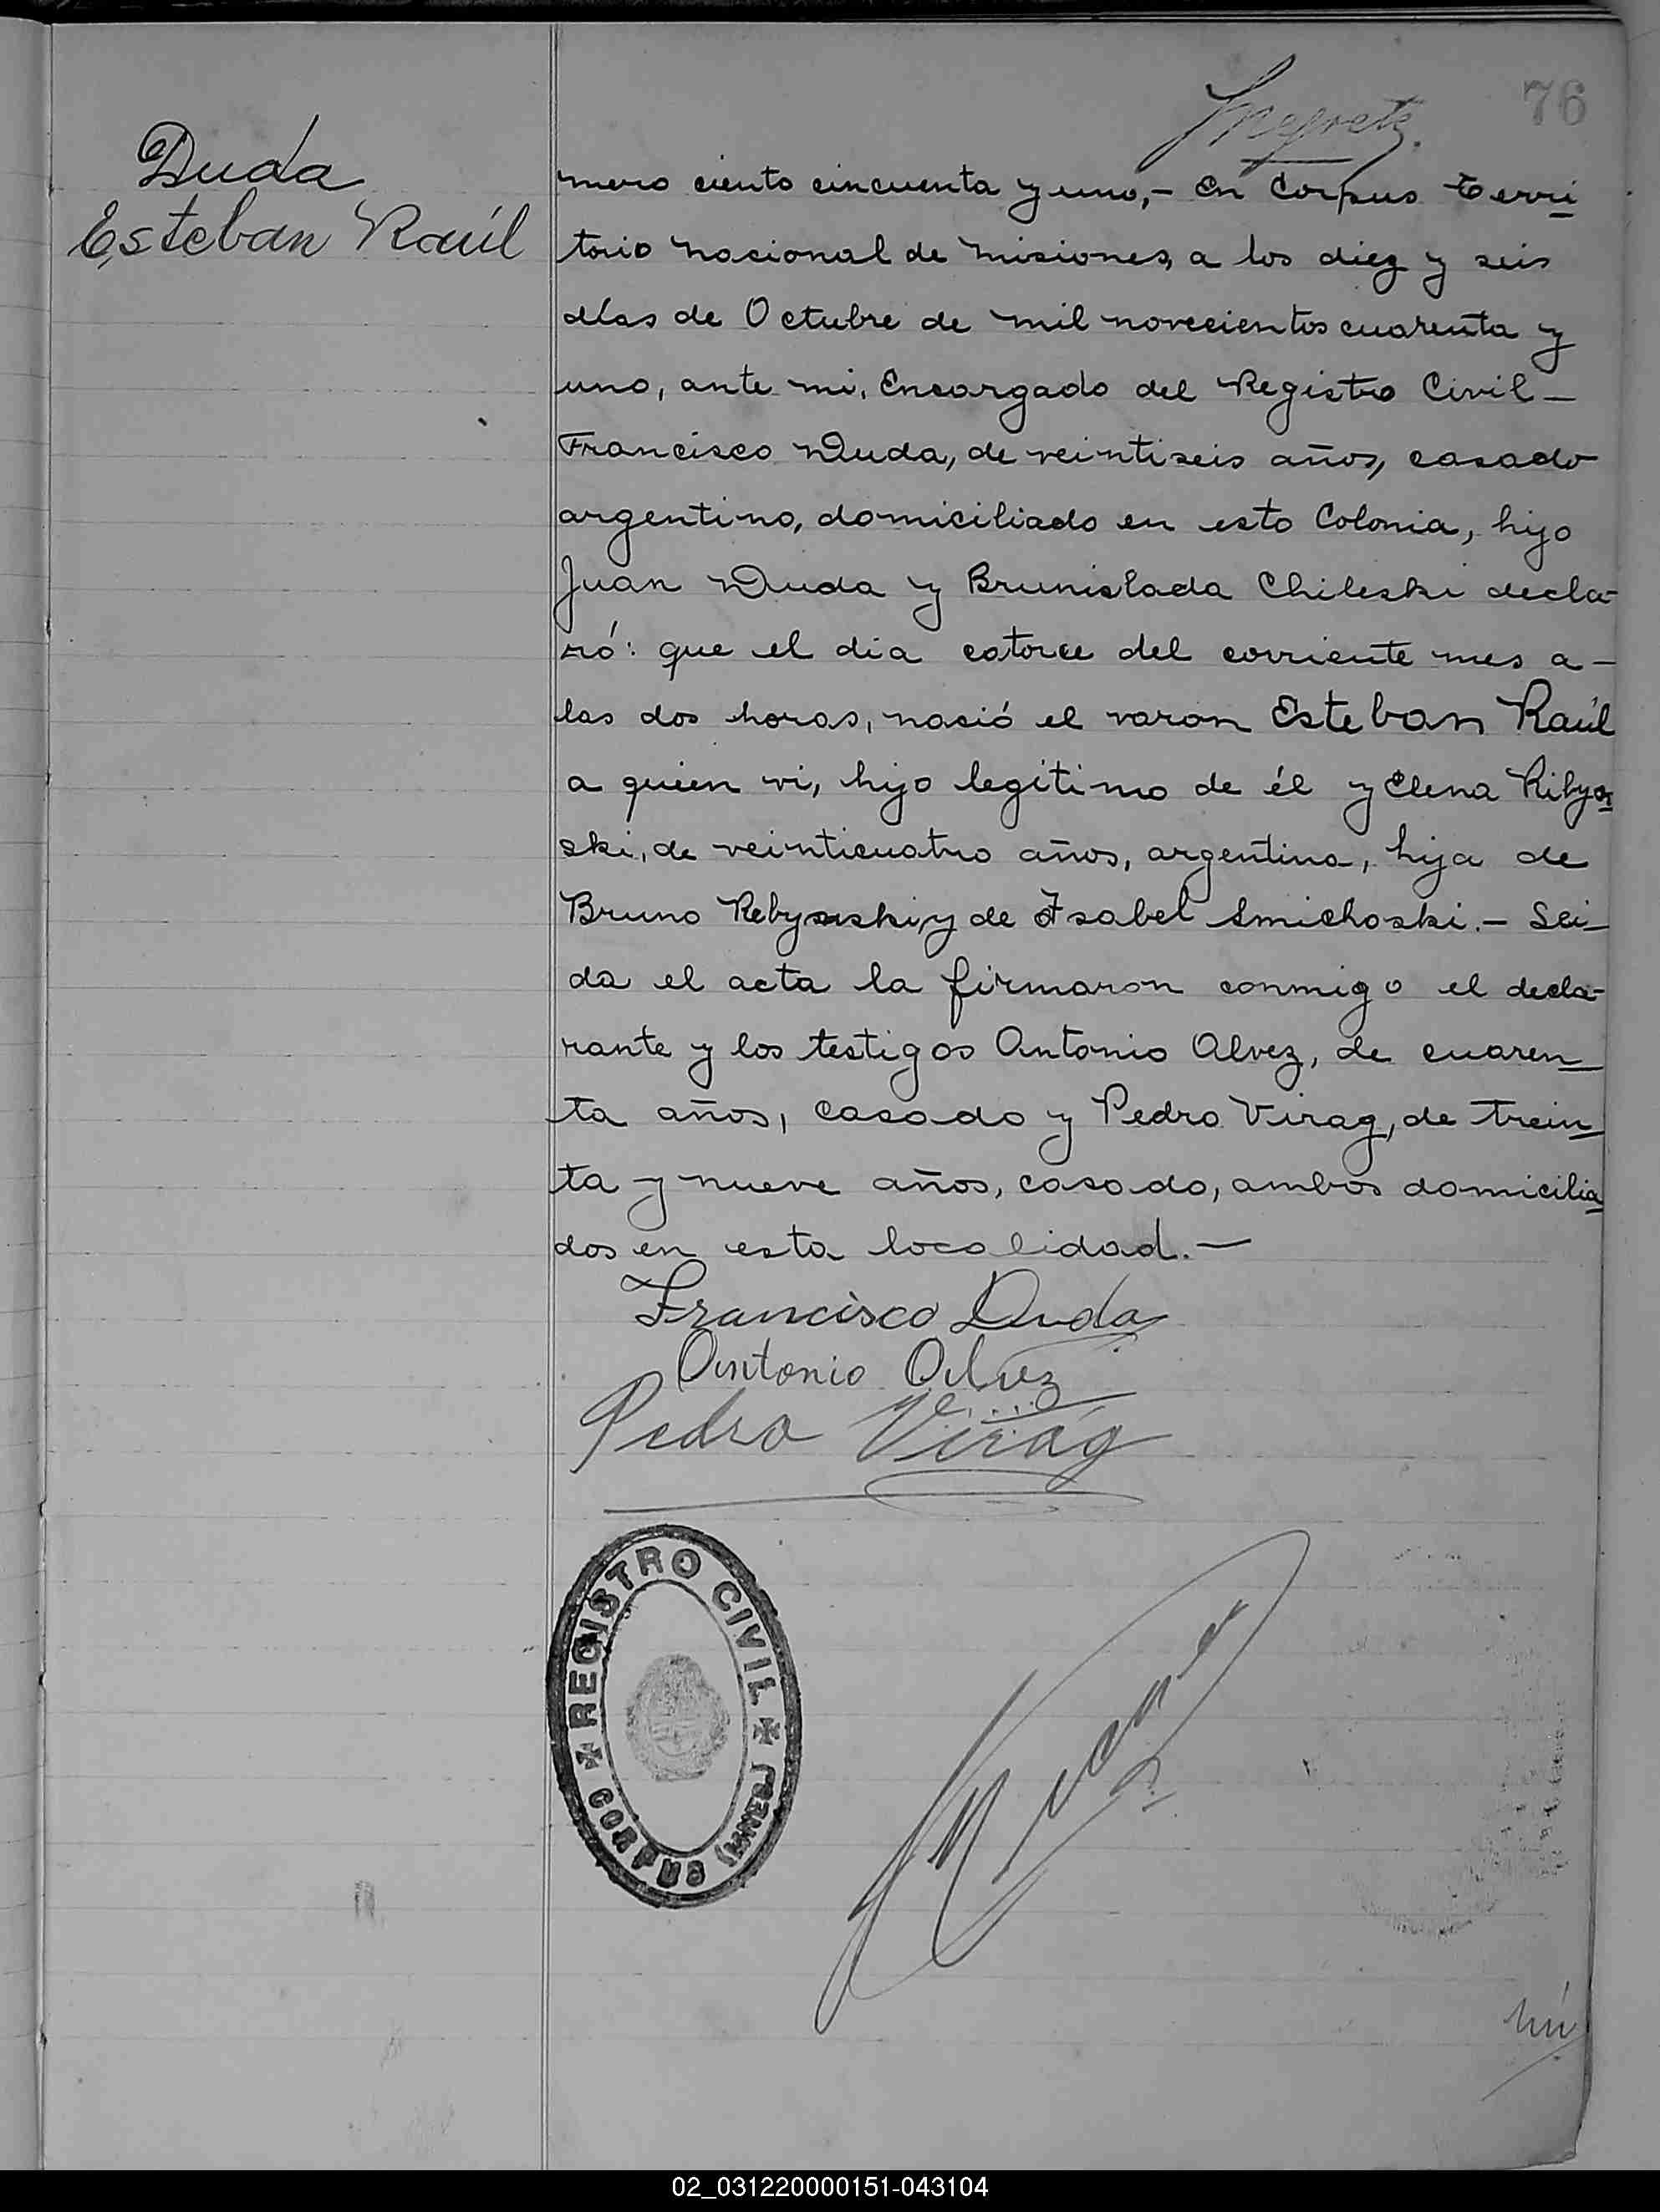 76
Duda
Esteban Raúl
mero ciento cincuenta y uno,- En Corpus Terri
torio nacional de Misiones, a los diez y seis
días de Octubre de mil novecientos cuarenta y
uno, ante mi, Encargado del Registro Civil -
Francisco Duda, de veintiseis años, casado
argentino, domiciliado en esta Colonia, hijo
Juan Duda y Brunislada Chileski decla-
ró: que el dia catorce del corriente mes a -
las dos horas, nació el varon Esteban Raúl
a quien vi, hijo legítimo de él y Elena
ski, de veinticuatro años, argentina, hija de
Bruno y de Isabel Smichoski. - Lei_
da el acta la firmaron conmigo el decla-
rante y los testigos Antonio Alvez, de cuaren_
ta años, casado y Pedro Virag, de trein_
ta y nueve años, casado, ambos domicilia
dos en esta localidad. -
Francisco Duda
Antonio Alvez
Pedro Virág
REGISTRO CIVIL
CORPUS
nú
02_031220000151-043104